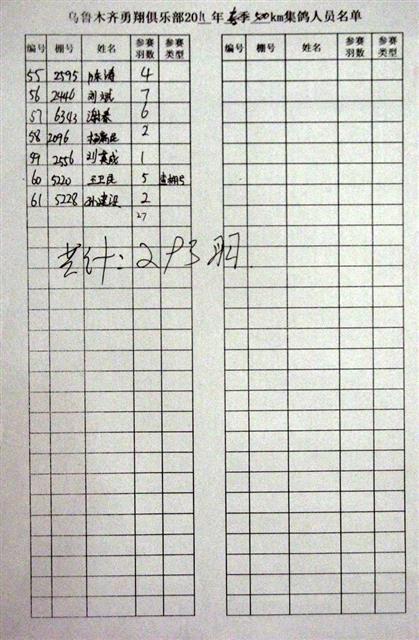 乌鲁木齐勇翔俱乐部2011年春季500km集鸽人员名单
编号 棚号 姓名 参赛羽数 参赛类型 编号 棚号 姓名 参赛羽数 参赛类型
55 2595 陈涛 4
56 2446 刘斌 7
57 6343 谢春 6
58 2096 2
59 2556 刘英成 1
60 5220 王卫民 5 查棚号
61 5228 孙建设 2
27
共计:293羽